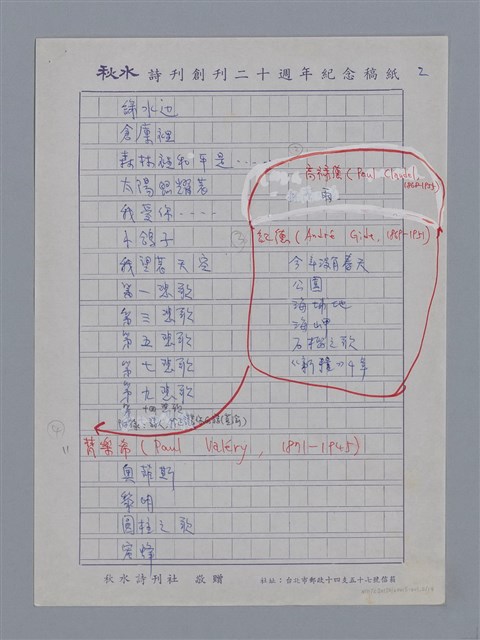 秋水詩刊創刊二十週年紀念稿紙
2
綠水边
倉廩裡
森林裡和平是‥‥
太陽照耀著
我愛你‥‥
小鴿子
我望著天空
第一悲歌
第三悲歌
第五悲歌
第七悲歌
第九悲歌
第十個悲歌
高祿德 (Paul Claudel, 1868-1955)
③
紀德 (André Gide, 1869-1951)
今年沒有春天
公園
海埔地
海岬
石榴之歌
《新糧》4章
④
梵樂希 (Paul Valéry, 1871-1945)
奧菲斯
黎明
圓柱之歌
蜜蜂
秋水詩刊社 敬贈
社址：台北市郵政十四支五十七號信箱